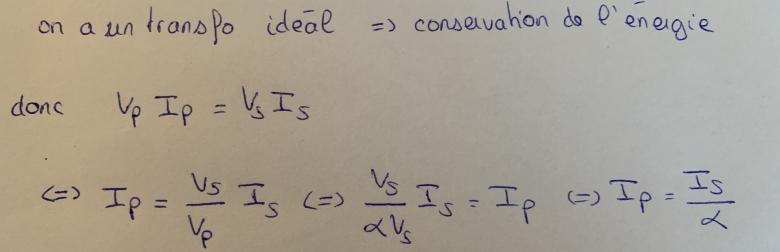 on a un transfo idéal => conservation de l'énergie
donc Vp Ip = Vs Is
<=> Ip = Vs/Vp Is <=> Vs/αVs Is = Ip <=> Ip = Is/α